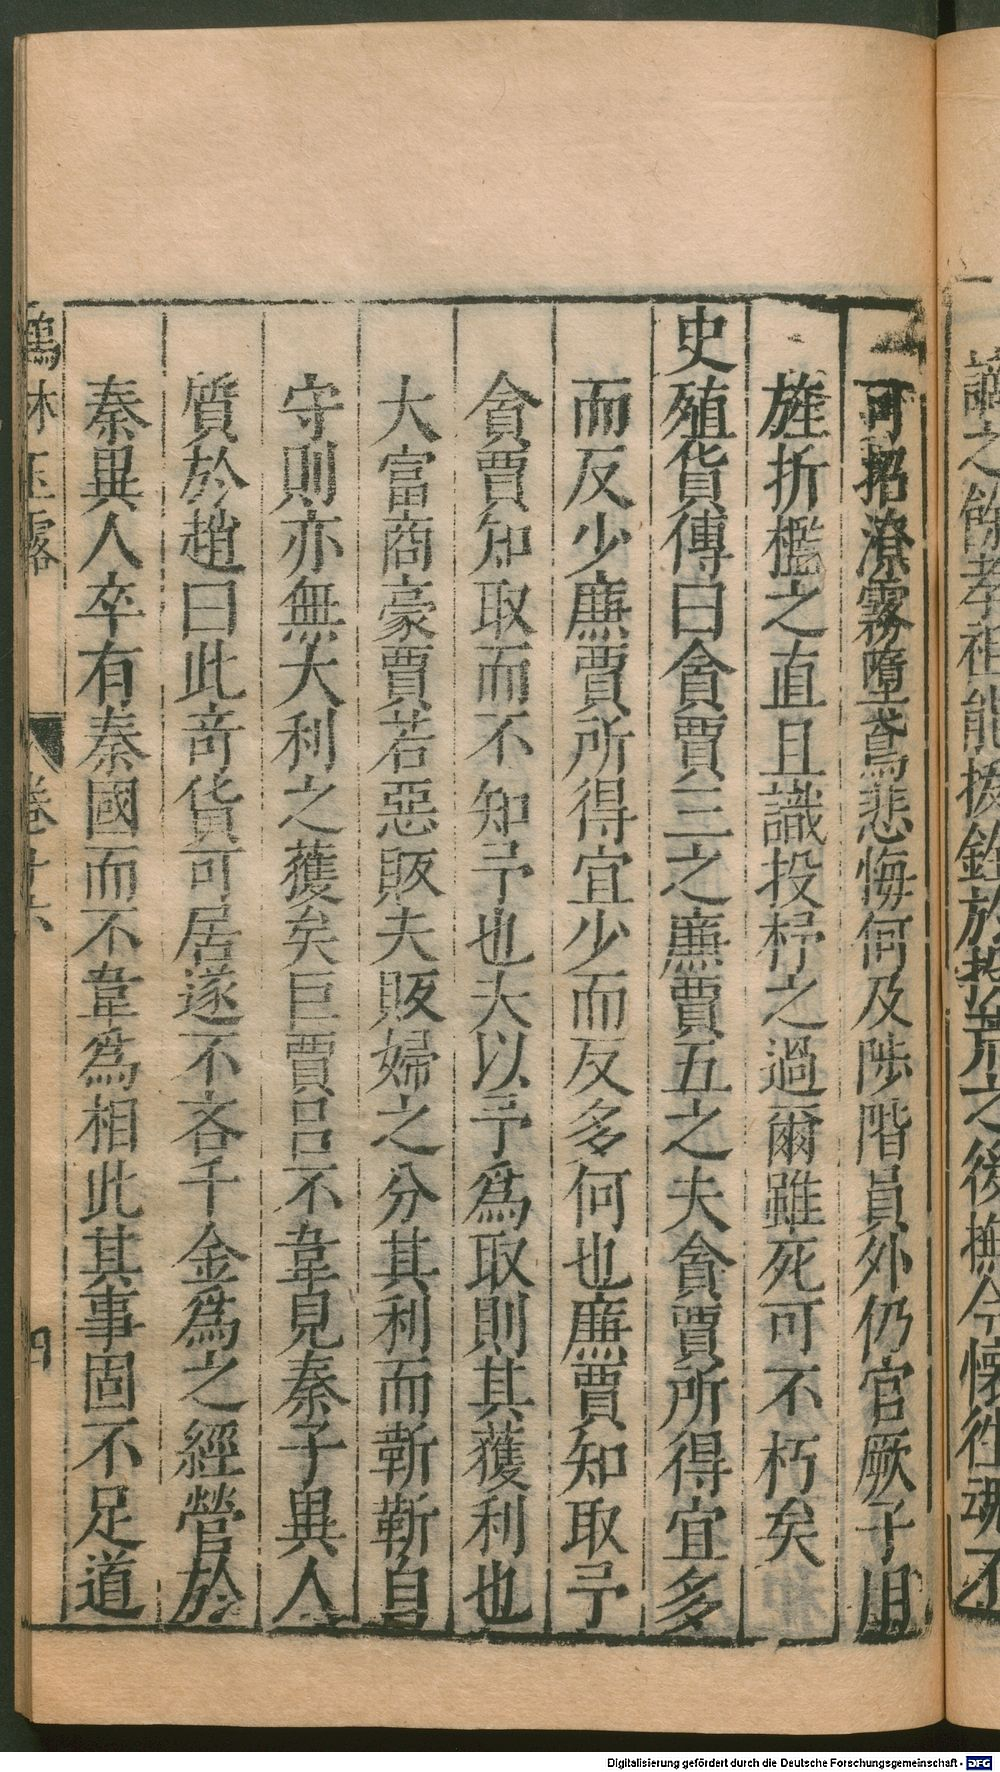 論之餘孝祖能援鉞於投荒之後撫今懷往魂不
可招潦霧墮鳶悲悔何及陟階員外仍官厥子用
旌折檻之直且識投杼之過爾雖死可不朽矣
史殖貨傳曰貪賈三之廉賈五之夫貪賈所得宜多
而反少廉賈所得宜少而反多何也廉賈知取予
貪賈知取而不知予也夫以予為取則其獲利也
大富商豪賈若惡販夫販婦之分其利而靳靳自
守則亦無大利之獲矣巨賈呂不韋見秦子異人
質於趙曰此奇貨可居遂不吝千金為之經營於
秦異人卒有秦國而不韋為相此其事固不足道
鶴林玉露 卷十六 四
Digitalisierung gefördert durch die Deutsche Forschungsgemeinschaft - DFG